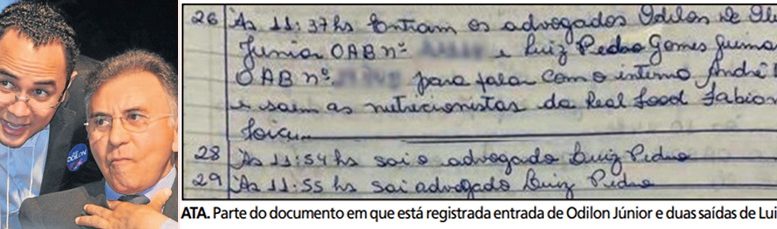 ODILON
26 As 11:37hs Entram os advogados Odilon de Oli
Junior OAB nº e Luiz Pedro Gomes Guima
OAB nº para falar com o interno André
e saem as nutricionistas da Real Food Fabio
28 As 11:54 hs sai o advogado Luiz Pedro
29 As 11:55 hs sai advogado Luiz Pedro
ATA. Parte do documento em que está registrada entrada de Odilon Júnior e duas saídas de Lui